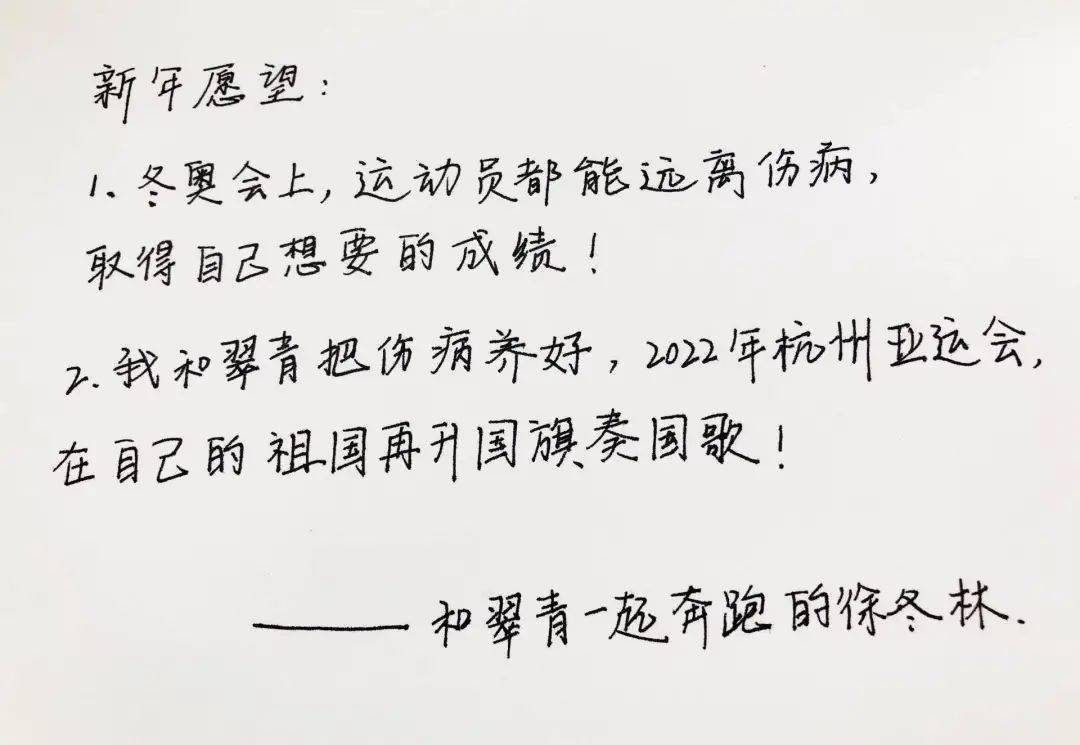 新年愿望：
1、冬奥会上，运动员都能远离伤病，
取得自己想要的成绩！
2.我和翠青把伤病养好，2022年杭州亚运会，
在自己的祖国再升国旗奏国歌！
——和翠青一起奔跑的徐冬林.